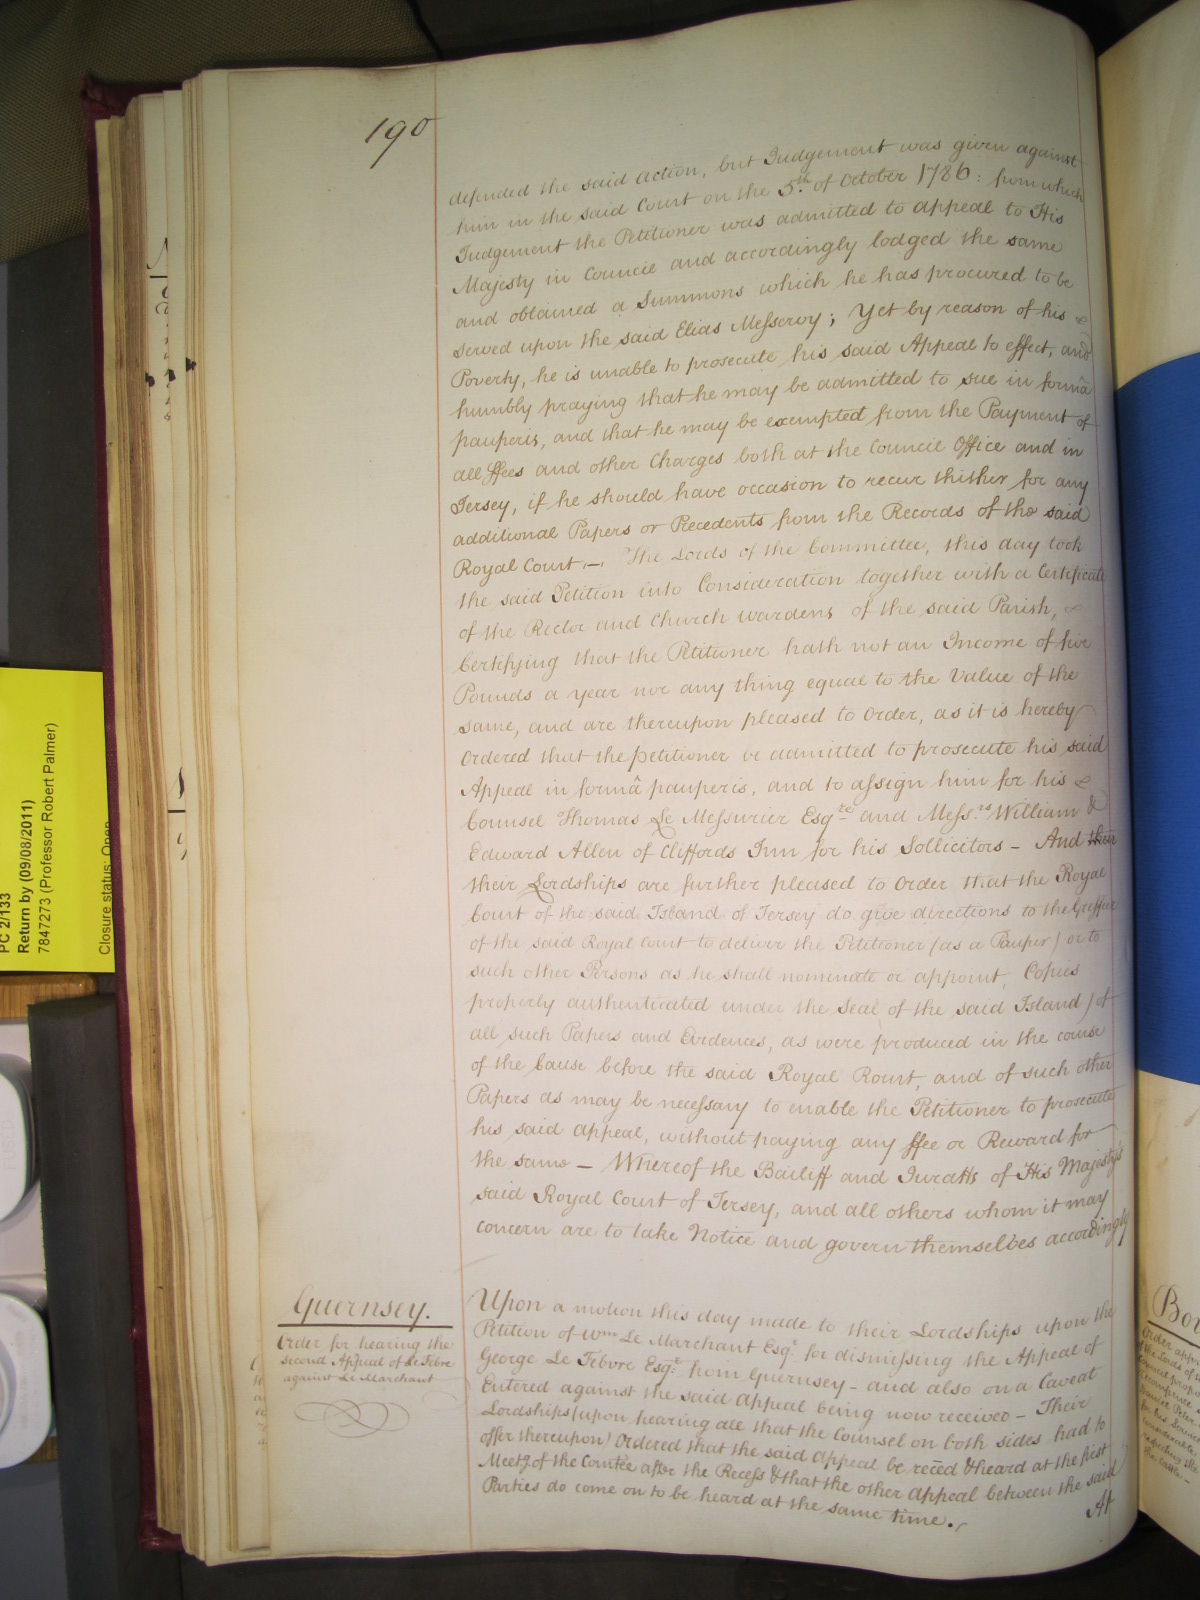 190
defended the said Action, but Judgement was given against
him in the said Court on the 5th. of October 1786: from which
Judgement the Petitioner was admitted to appeal to His
Majesty in Council and accordingly lodged the same
and obtained a Summons which he has procured to be
served upon the said Elias Messervy; Yet by reason of his
Poverty, he is unable to prosecute his said Appeal to effect, and
humbly praying that he may be admitted to sue in formâ
pauperis, and that he may be exempted from the Payment of
all ffees and other Charges both at the Council Office and in
Jersey, if he should have occasion to recur thither for any
additional Papers or Precedents from the Records of the said
Royal Court.—. The Lords of the Committee, this day took
the said Petition into Consideration together with a Certificate
of the Rector and Church wardens of the said Parish,
Certifying that the Petitioner hath not an Income of five
Pounds a year nor any thing equal to the Value of the
same, and are thereupon pleased to Order, as it is hereby
Ordered that the petitioner be admitted to prosecute his said
Appeal in formâ pauperis, and to assign him for his
Counsel Thomas Le Messurier Esqre and Messrs William &
Edward Allen of Cliffords Inn for his Sollicitors — And their
their Lordships are further pleased to Order that the Royal
Court of the said Island of Jersey do give directions to the Greffier
of the said Royal Court to deliver the Petitioner (as a Pauper) or to
such other Persons as he shall nominate or appoint, Copies
properly authenticated under the Seal of the said Island) of
all such Papers and Evidences, as were produced in the course
of the Cause before the said Royal Rourt, and of such other
Papers as may be necessary to enable the Petitioner to prosecute
his said appeal, without paying any ffee or Reward for
the same — Whereof the Bailiff and Juratts of His Majesty's
said Royal Court of Jersey, and all others whom it may
concern are to take Notice and govern themselves accordingly
Guernsey.
Order for hearing the
second Appeal of Le Febre
against Le Marchant
Upon a motion this day made to their Lordships upon the
Petition of Wm Le Marchant Esqr. for dismissing the Appeal of
George Le Febvre Esqr. from Guernsey — and also on a Caveat
Entered against the said Appeal being now received — Their
Lordships (upon hearing all that the Counsel on both sides had to
offer thereupon) Ordered that the said Appeal be reced & heard at the first
Meetg. of the Comtee after the Recess & that the other Appeal between the said
Parties do come on to be heard at the same time.
At
PC 2/133
Return by (09/08/2011)
7847273 (Professor Robert Palmer)
Closure status: Open